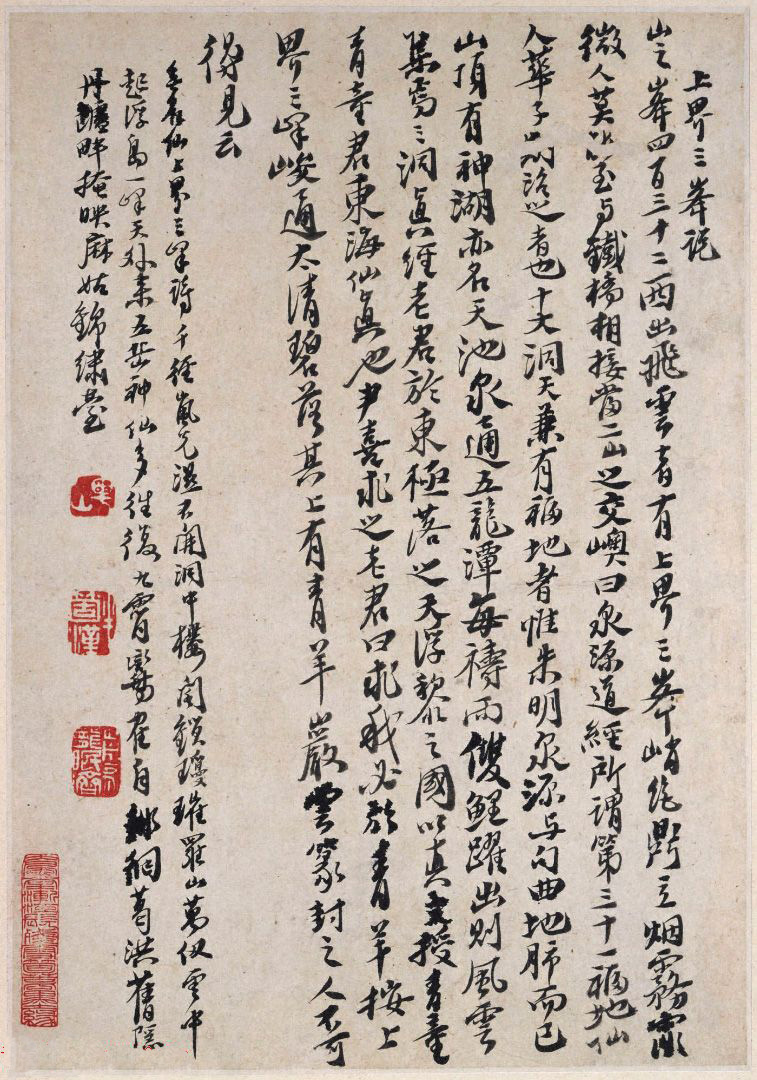 上界三峯説
山之峯四百三十二西出飛雲者有上界三峯峭絶鼎立烟霧霏
微人莫以至与鐵橋相接當二山之交嶼曰泉源道經所謂第三十一福地仙
人華子期治之者也十大洞天兼有福地者惟朱明泉源与句曲地肺而已
山頂有神湖亦名天池泉通五龍潭每禱雨雙鯉躍出則風雲
集焉三洞真經老君於東極落之天浮黎之國以真文授青童
青童君東海仙真也尹喜求之老君曰求我必於青羊按上
界三峰峻通太清碧落其上有青羊巖雲篆封之人不可
得見云
仙上界三峰詩千種嵐光濕不開洞中樓閣鎖瓊瑰羅山萬仭雲中
起浮島一峰天外來五岳神仙多往復九霄鸞崔自葛洪舊隱
丹罏畔掩映麻姑錦繡臺